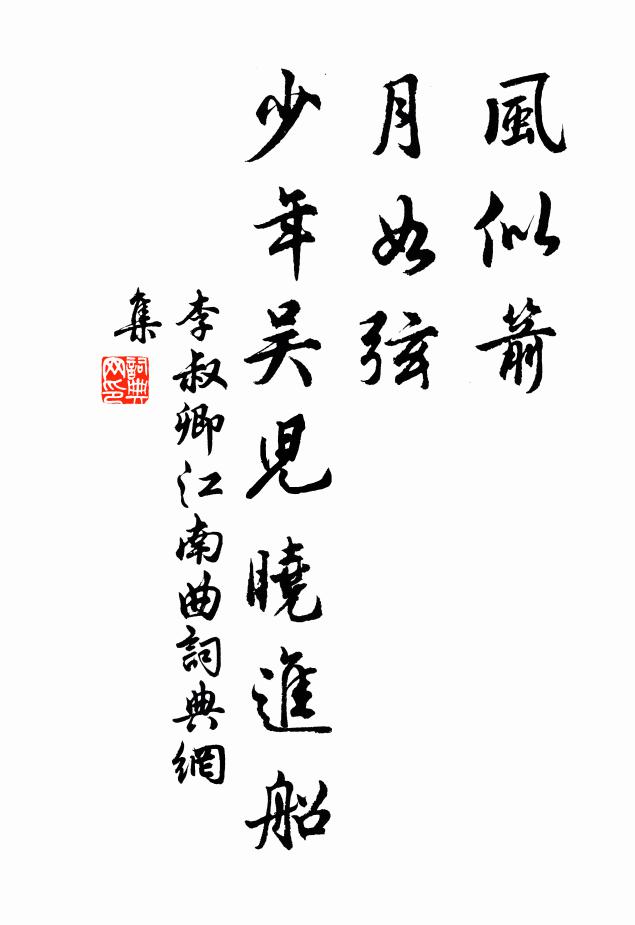 風似箭
月如弦
少年吴兒曉進船
李叔卿江南曲詞典網
集
詞典
网印